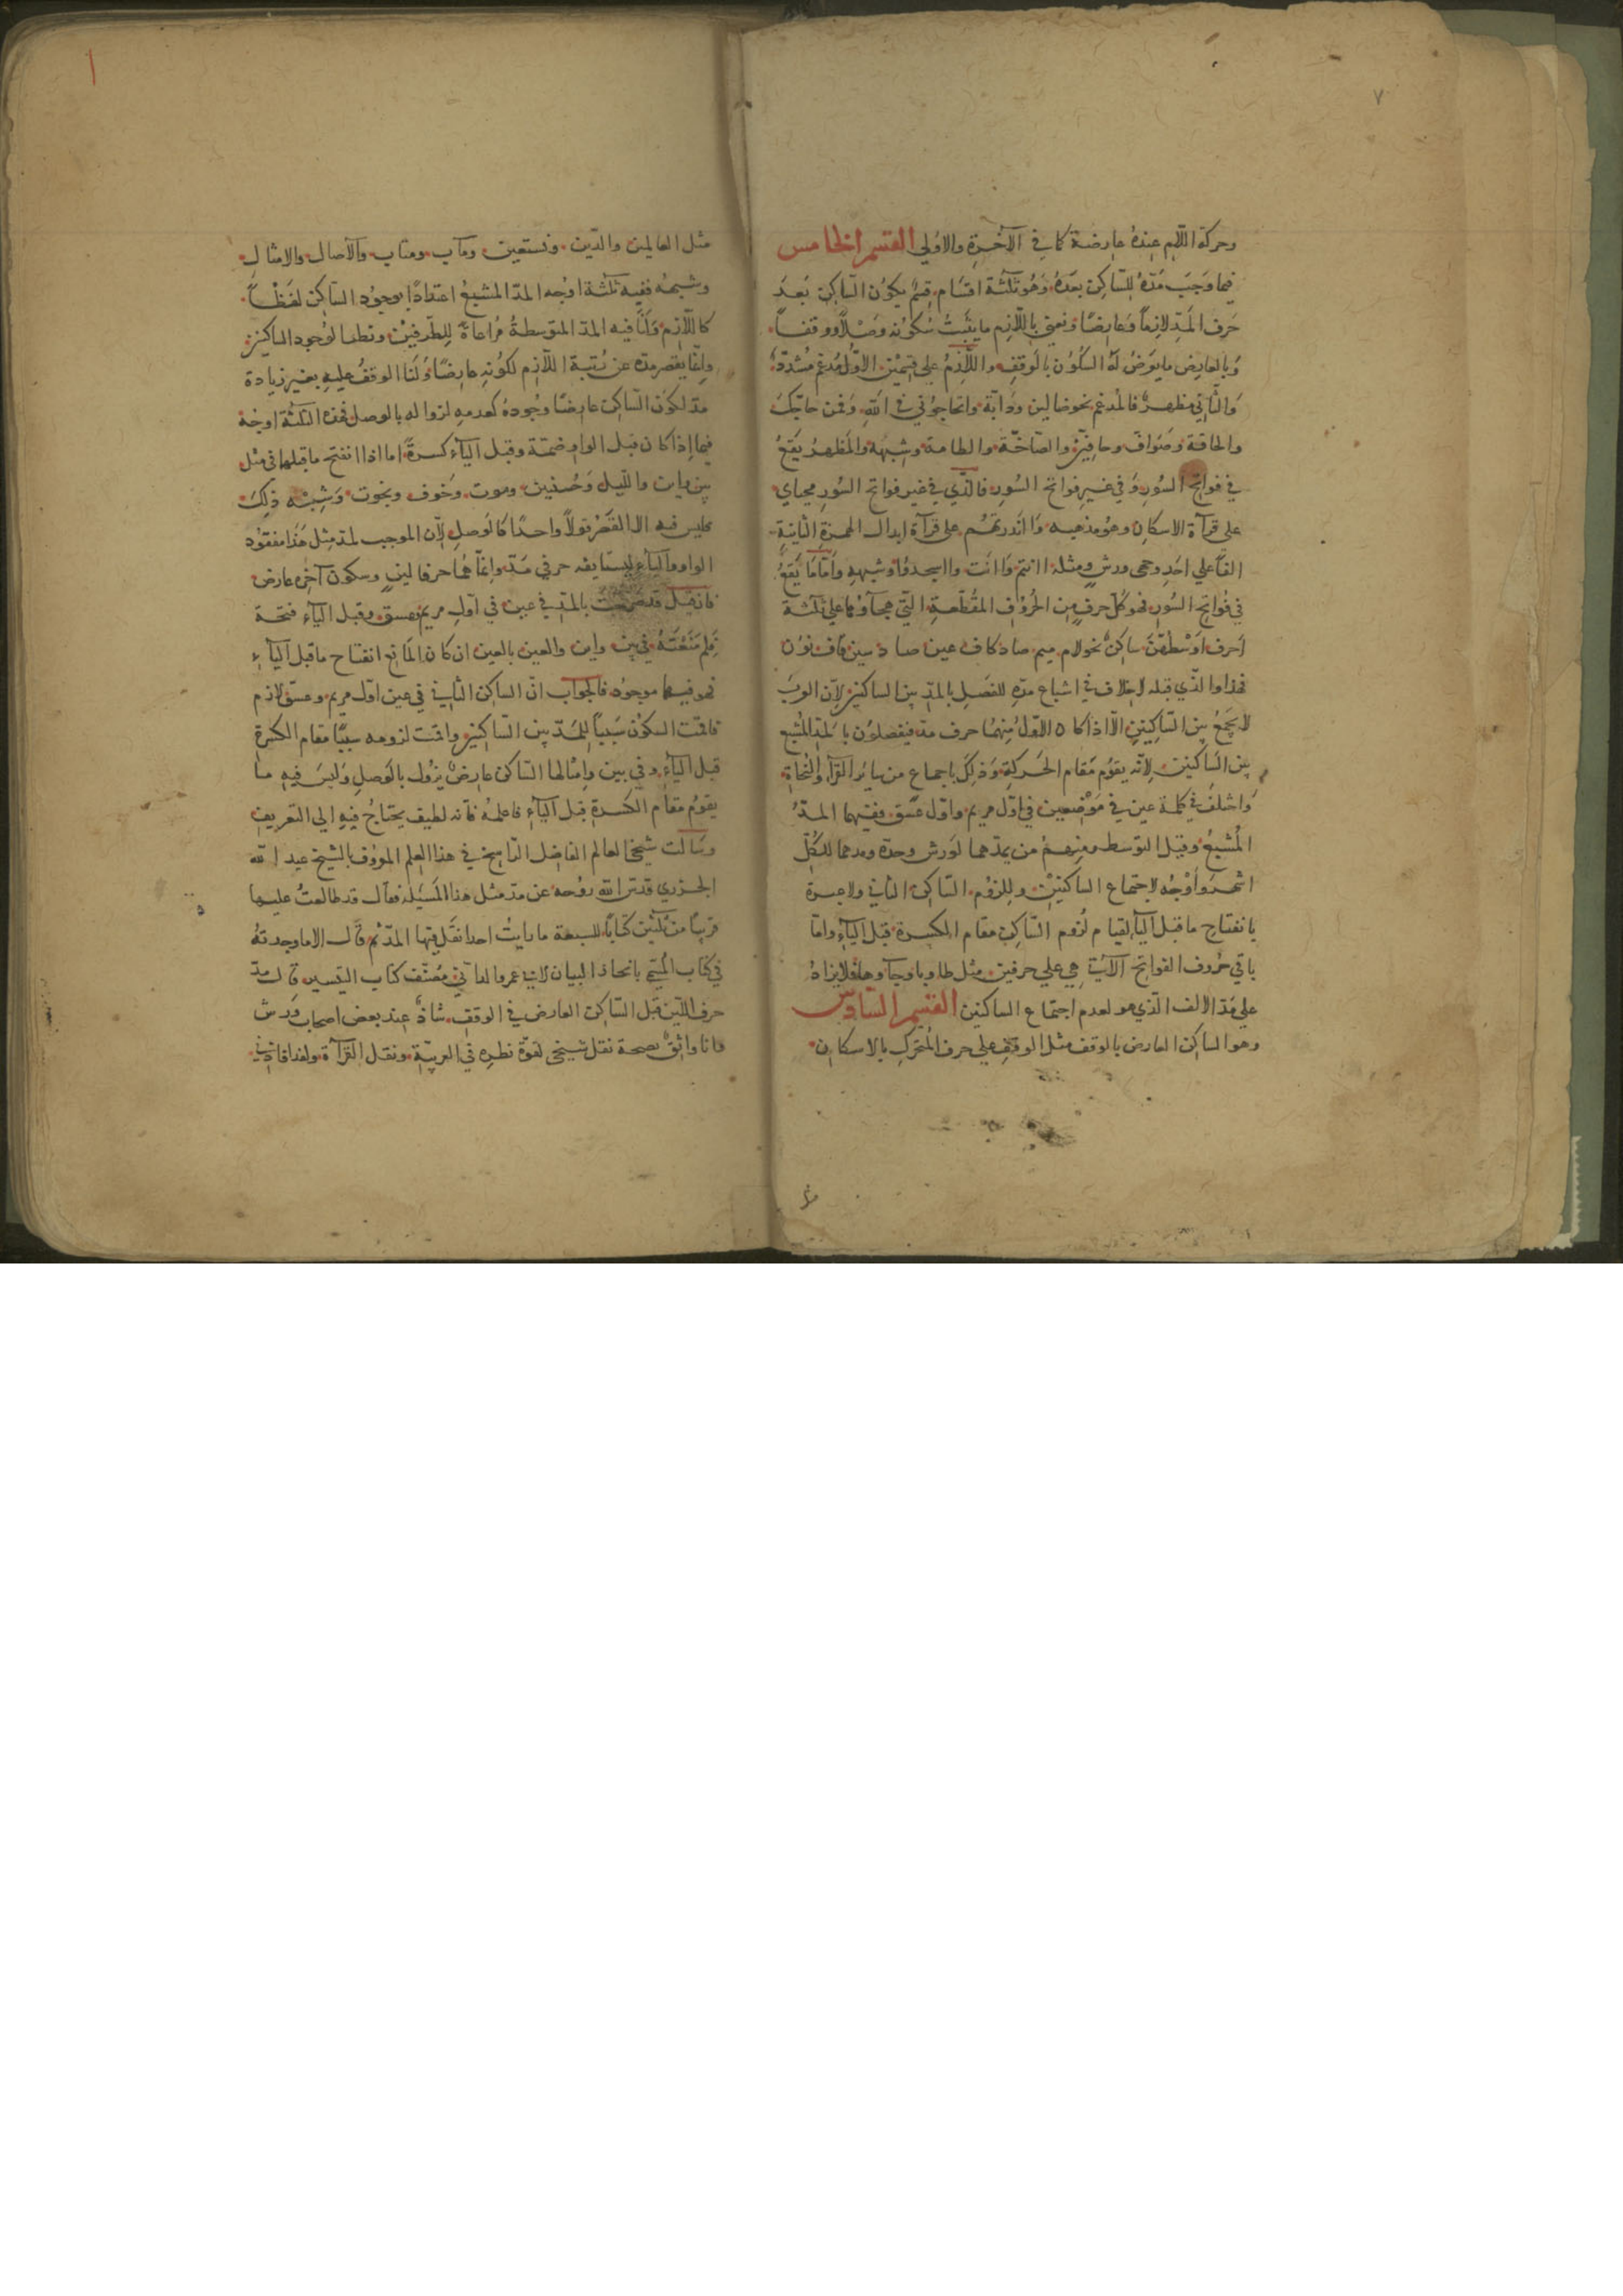 ٧
وحركة اللام عنده عارضة كما في الآخرة والاولي القسم الخامس
فيما وجب مده للساكن بعده وهو ثلثة اقسام قسم يكون الساكن بعد
حرف المد لازما وعارضا ونعني باللازم ما يثبت سكونه وصلا ووقفا
وبالعارض ما يعرض له السكون بالوقف واللازم علي قسمين الاول مدغم مشدد
والثاني مظهر فالمدغم نحو ضالين ودابة واتحاجوني في الله وفمن حاجك
والحاقة وصواف وحافين والصاخة والطامة وشبهه والمظهر يقع
في فواتح السور وفي غير فواتح السور فالذي في غير فواتح السور محياي
علي قرآة الاسكان وهو مذهبه وأانذرتهم علي قرآة ابدال الهمزة الثانية
الفا علي احد وجهي ورش ومثله اانتم وأانت وااسجد وشبهه واما ما يقع
في فواتح السور فهو كل حرف من الحروف المقطعة التي هجآؤها علي ثلثة
احرف اوسطهن ساكن نحو لام ميم صاد كاف عين صاد سين قاف نون
فهذا والذي قبله لا خلاف في اشباع مده للفصل بالمد بين الساكنين لان العرب
لا تجمع بين الساكنين الا اذا كان الاول منهما حرف مد فيفصلون بالمد المشبع
بين الساكنين لانه يقوم مقام الحركة وذلك باجماع من سائر القرآء والنحاة
واختلف في كلمة عين في موضعين في اول مريم واول عسق ففيهما المد
المشبع وقيل التوسط ومنهم من يمدهما لورش وحده ومدهما للكل
اشهر واوجه لاجتماع الساكنين وللزوم الساكن الثاني ولا عبرة
بانفتاح ما قبل اليآء لقيام لزوم الساكن مقام الكسرة قبل اليآء واما
باقي حروف الفواتح الآتية هي علي حرفين مثل طا ويا وحآ وها فلا يزاد
علي مد الالف الذي هو لعدم اجتماع الساكنين القسم السادس
وهو الساكن العارض بالوقف مثل الوقف علي حرف المتحرك بالاسكان
مثل
مثل العالمين والدين ونستعين ومآب ومتاب والآصال والامثال
وشبهه ففيه ثلثة اوجه المد المشبع اعتدادا بوجود الساكن لفظا
كاللازم ولنا فيه المد المتوسطة مراعاة للطرفين ونظرا لوجود الساكنين
وانما يقصر مده عن رتبة اللازم لكونه عارضا ولنا الوقف عليه بغير زيادة
مد لكون الساكن عارضا وجوده كعدمه لزواله بالوصل فهذه الثلثة اوجه
فيما اذا كان قبل الواو ضمة وقبل اليآء كسرة اما اذا انفتح ما قبلهما في مثل
بين والليل وحسنين وموت وخوف وشبه ذلك
فليس فيه الا القصر قولا واحدا كالوصل لان الموجب لمد مثل هذا مفقود
الواو واليآء ليستا فيه حرفي مد وانما هما حرفا لين وسكون آخره عارض
فان قيل قد صرحت بالمد في عين في اول مريم وعسق وقبل اليآء فتحة
فلم منعته في بين واين والعين بالعين ان كان المانع انفتاح ما قبل اليآء
فهو فيهما موجود فالجواب ان الساكن الثاني في عين اول مريم وعسق لازم
فاقمت السكون سببا للمد بين الساكنين واقمت لزومه سببا مقام الكسرة
قبل اليآء وفي بين وامثالها الساكن عارض يزول بالوصل وليس فيه ما
يقوم مقام الكسرة قبل اليآء فاعلمه فانه لطيف يحتاج فيه الي التعريف
وسالت شيخي العالم الفاضل الناسخ في هذا العلم المعروف بالشيخ عبد الله
الجزري قدس الله روحه عن مد مثل هذا المسيلة فقال قد طالعت عليها
قريبا من ثلثين كتابا للسبعة ما رايت احدا نقل فيها المد ثم قال الا ما وجدته
في كتاب البيان لابي عمرو الداني مصنف كتاب التيسير قال مد
حرف اللين قبل الساكن العارض في الوقف شاذ عند بعض اصحاب ورش
فانا واثق بصحة نقل شيخي لقوة نظره في العربية ونقل القرآة ولقد افادني